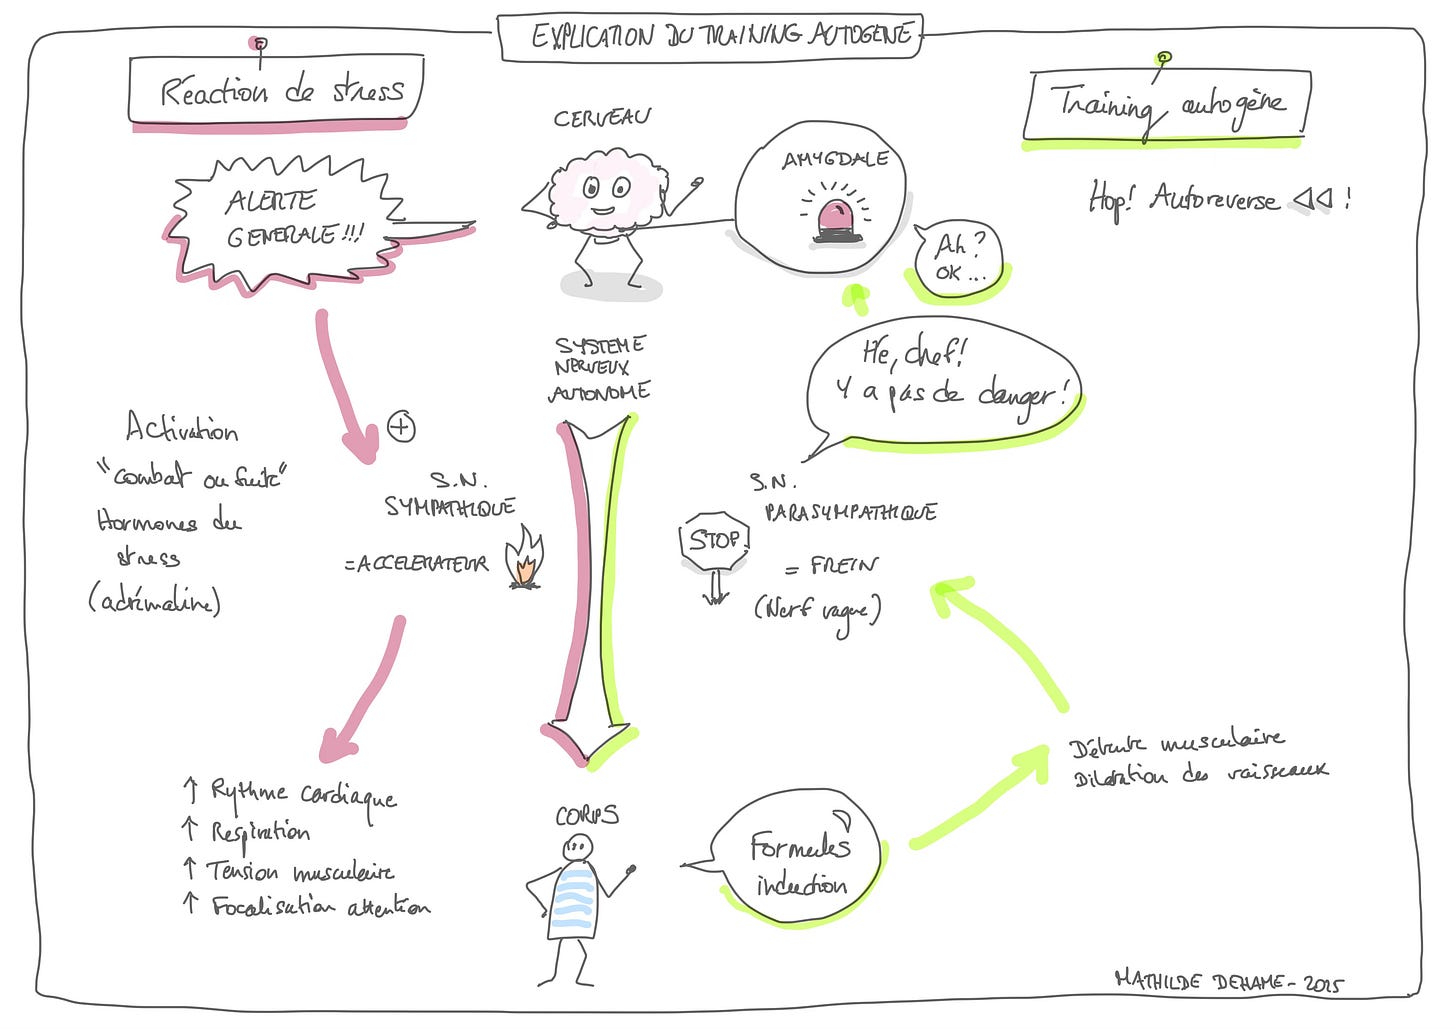 EXPLICATION DU TRAINING AUTOGENE
Réaction de stress
ALERTE
GENERALE!!!
CERVEAU
AMYGDALE
Training autogène
Hop! Autoreverse ◁◁ !
Ah?
OK...
Hé, chef!
Y a pas de danger!
SYSTEME
NERVEUX
AUTONOME
Activation
"combat ou fuite"
Hormones du
stress
(adrénaline)
+
S.N.
SYMPATHIQUE
=ACCELERATEUR
STOP
S.N.
PARASYMPATHIQUE
= FREIN
(Nerf vague)
↑ Rythme cardiaque
↑ Respiration
↑ Tension musculaire
↑ Focalisation attention
CORPS
Formules
induction
Détente musculaire
Dilatation des vaisseaux
MATHILDE DEHAME - 2025